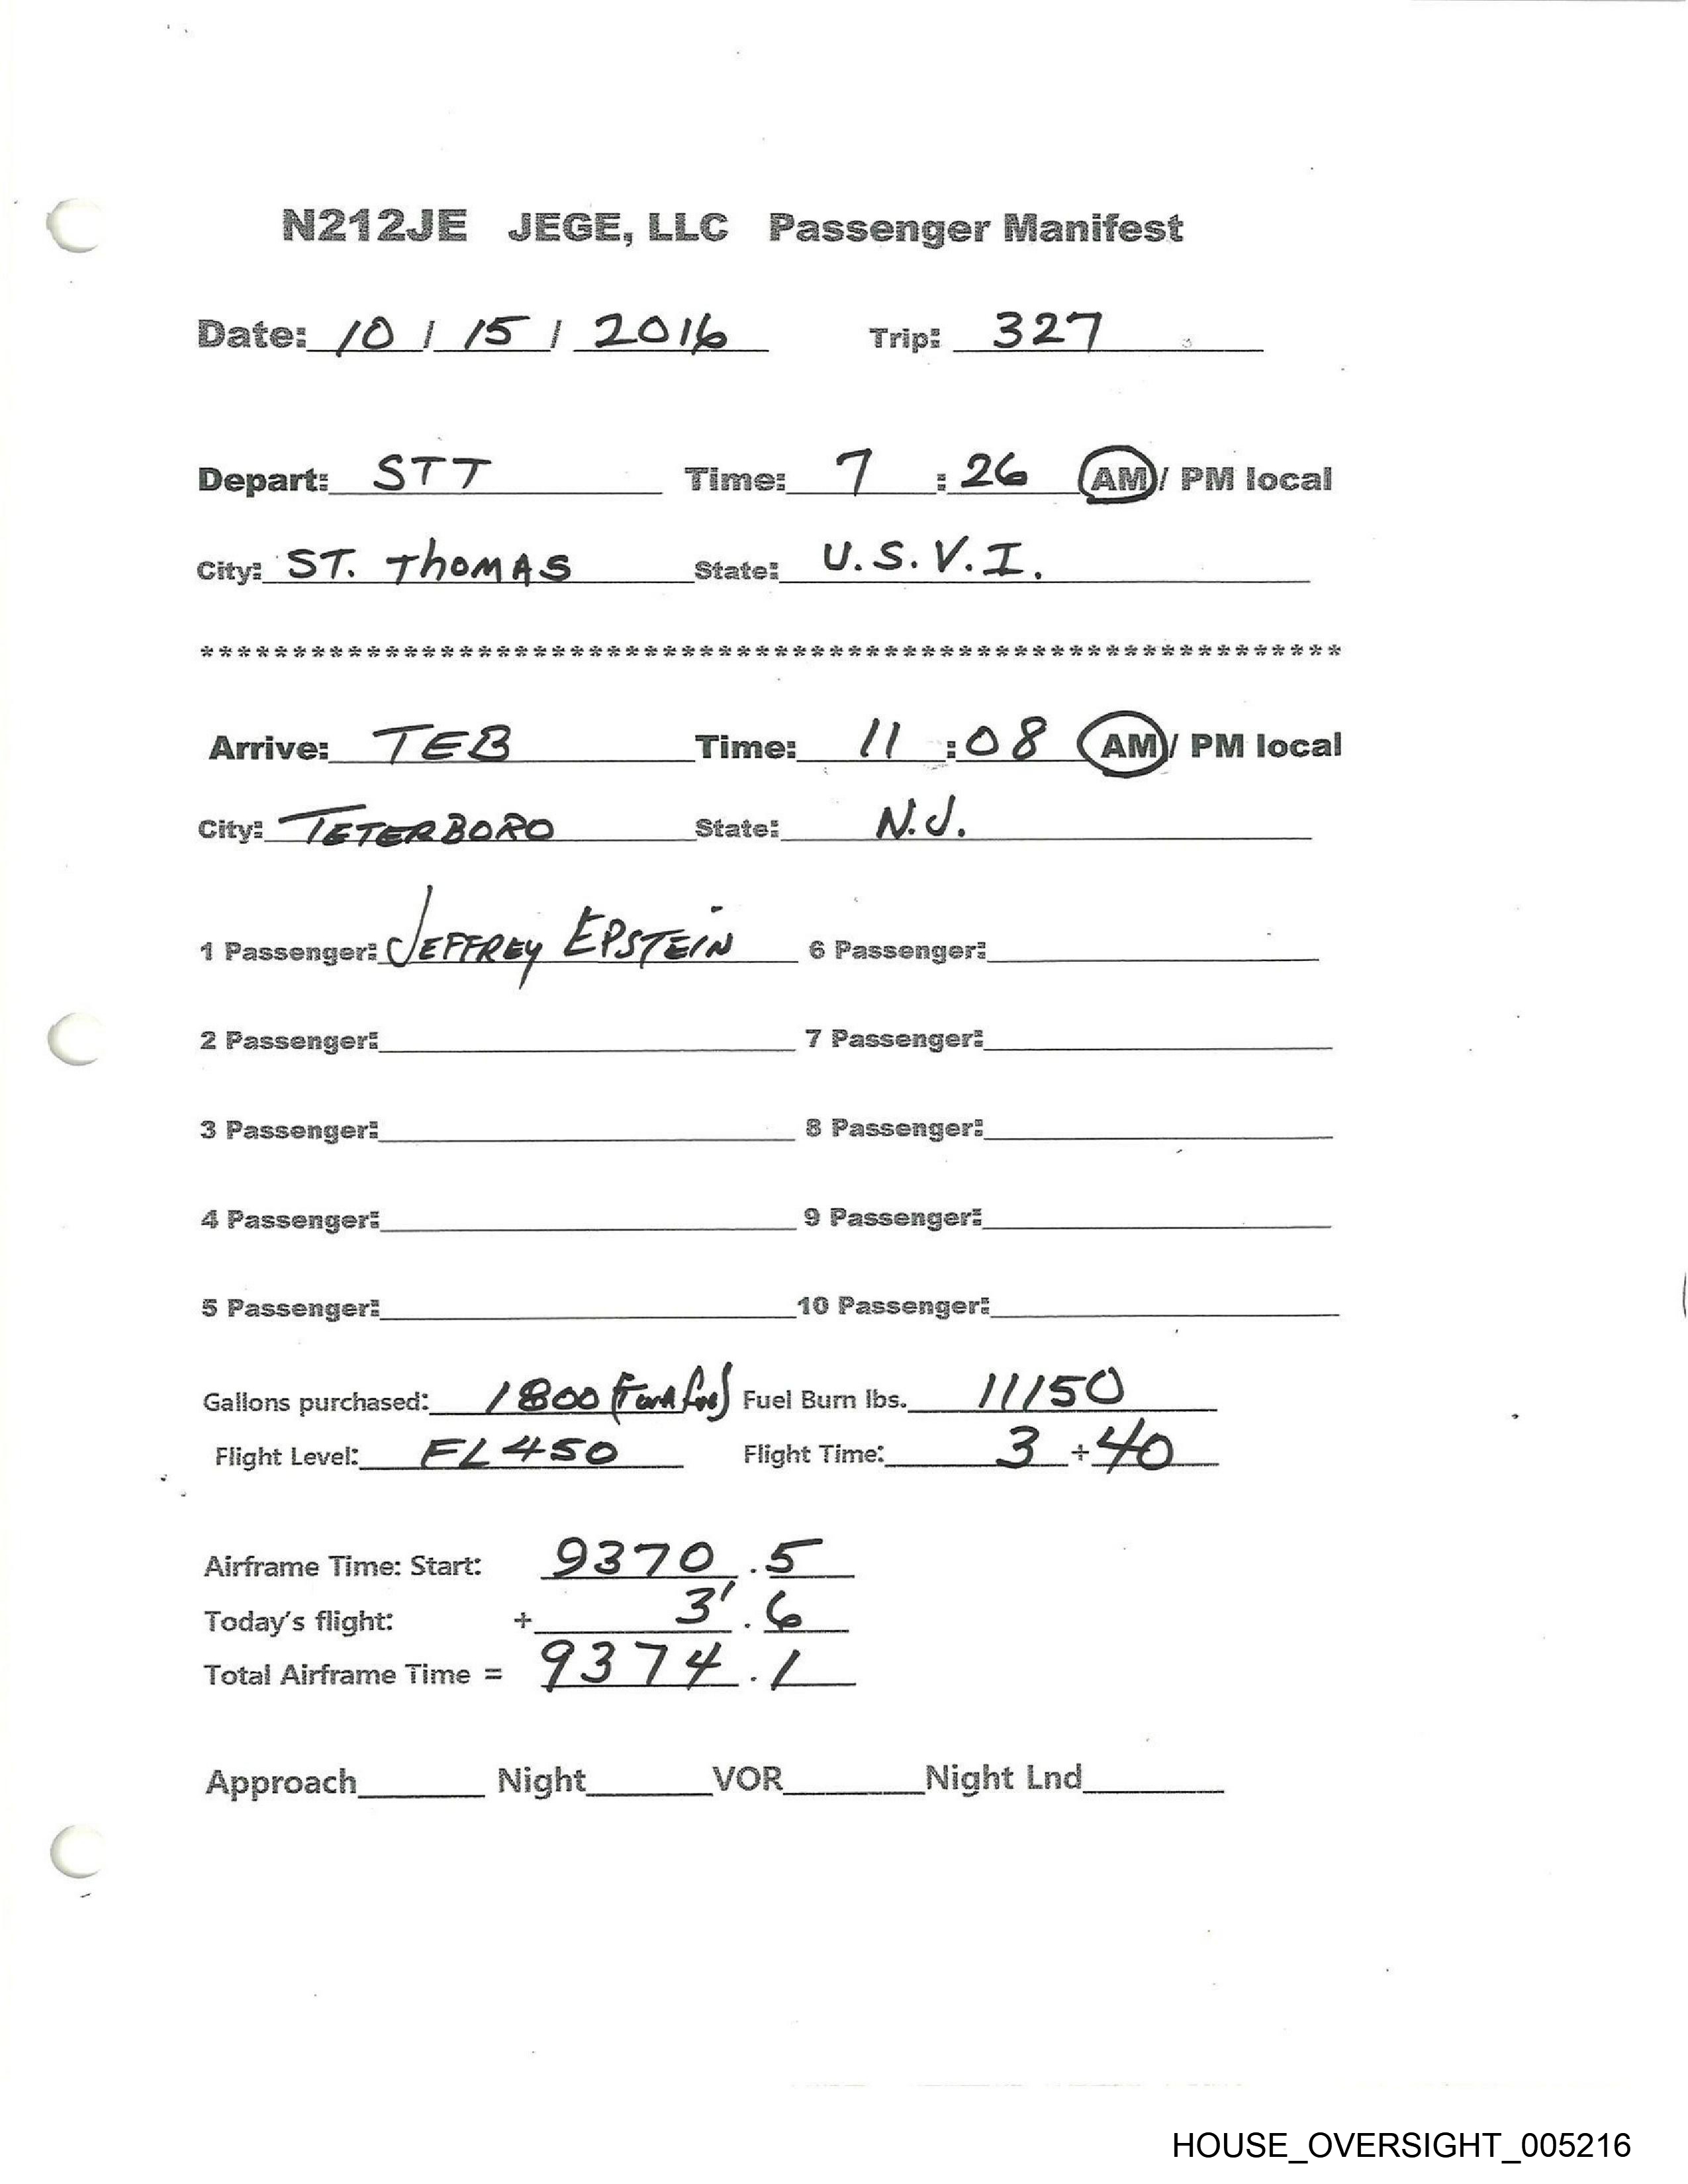 N212JE JEGE, LLC Passenger Manifest
Date: 10 / 15 / 2016 Trip: 327
Depart: STT Time: 7 : 26 AM / PM local
City: ST. ThOMAS State: U.S.V.I.
*************************************************************
Arrive: TEB Time: 11 : 08 AM / PM local
City: TETERBORO State: N.J.
1 Passenger: JEFFREY EPSTEIN 6 Passenger:
2 Passenger: 7 Passenger:
3 Passenger: 8 Passenger:
4 Passenger: 9 Passenger:
5 Passenger: 10 Passenger:
Gallons purchased: 1800 Fuel Burn lbs. 11150
Flight Level: FL450 Flight Time: 3 + 40
Airframe Time: Start: 9370 . 5
Today's flight: + 3 . 6
Total Airframe Time = 9374 . 1
Approach Night VOR Night Lnd
HOUSE_OVERSIGHT_005216